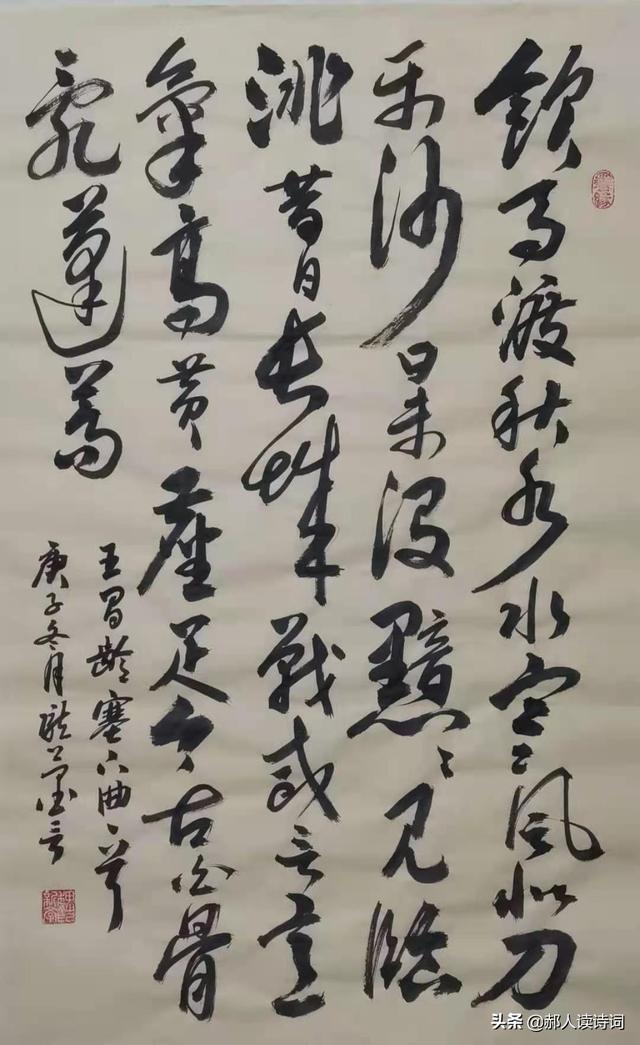 飲马渡秋水水寒風似刀
平沙日未没黯黯见臨
洮昔日長城戰咸言意
氣高黄塵足今古白骨
亂蓬蒿
王昌龄塞下曲一首
庚子冬月
头条 @郝人读诗词